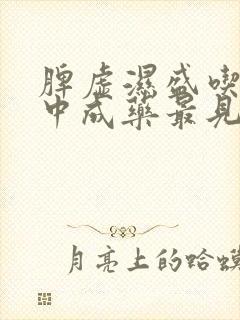 脾虚濕盛喫
中成藥最見
月亮上的蛤蟆